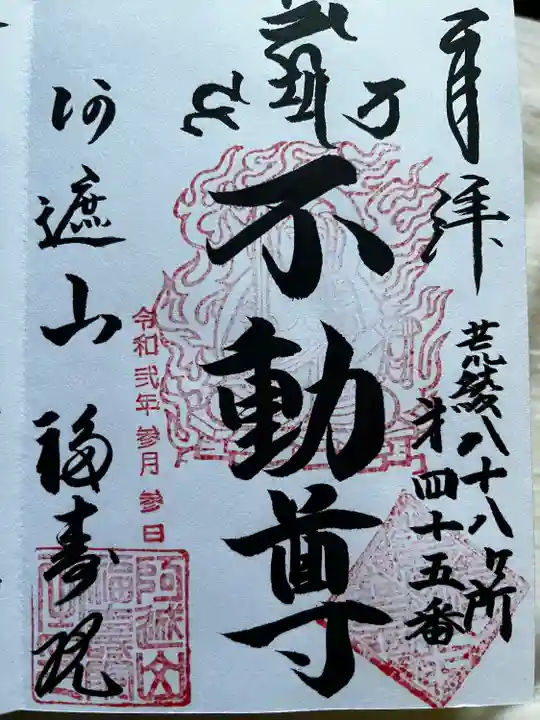 奉拝
荒綾八十八ヶ所
第四十五番
不動尊
令和弐年参月参日
阿遮山福寿院